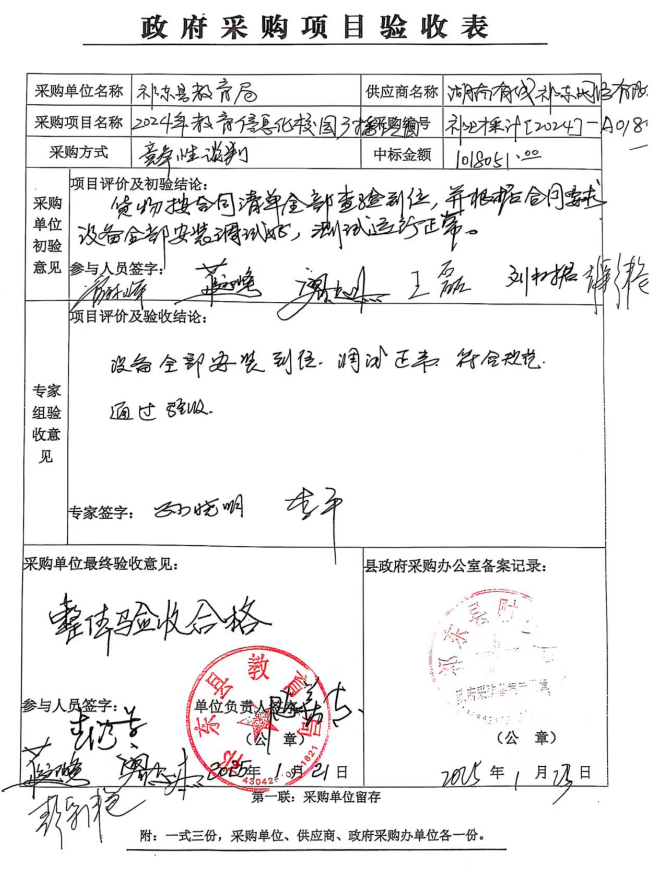 政府采购项目验收表
采购单位名称 祁东县教育局 供应商名称 湖南有线祁东网络有限
采购项目名称 2024年教育信息化校园广播 采购编号 祁财采计[2024]-A018
采购方式 竞争性谈判 中标金额 1018051.00
采购单位初验意见
项目评价及初验结论:
货物按合同清单全部查验到位,并根据合同要求
设备全部安装调试好,测试运行正常。
参与人员签字:
王磊
专家组验收意见
项目评价及验收结论:
设备全部安装到位.调试正常 符合规范.
通过验收.
专家签字: 孙晓明 李平
采购单位最终验收意见: 县政府采购办公室备案记录:
整体验收合格
祁东县教育局
4304260001821
祁东县财
参与人员签字: 单位负责人签字:
(公 章) (公 章)
2025年1月21日 2025年1月23日
第一联:采购单位留存
附:一式三份,采购单位、供应商、政府采购办单位各一份。